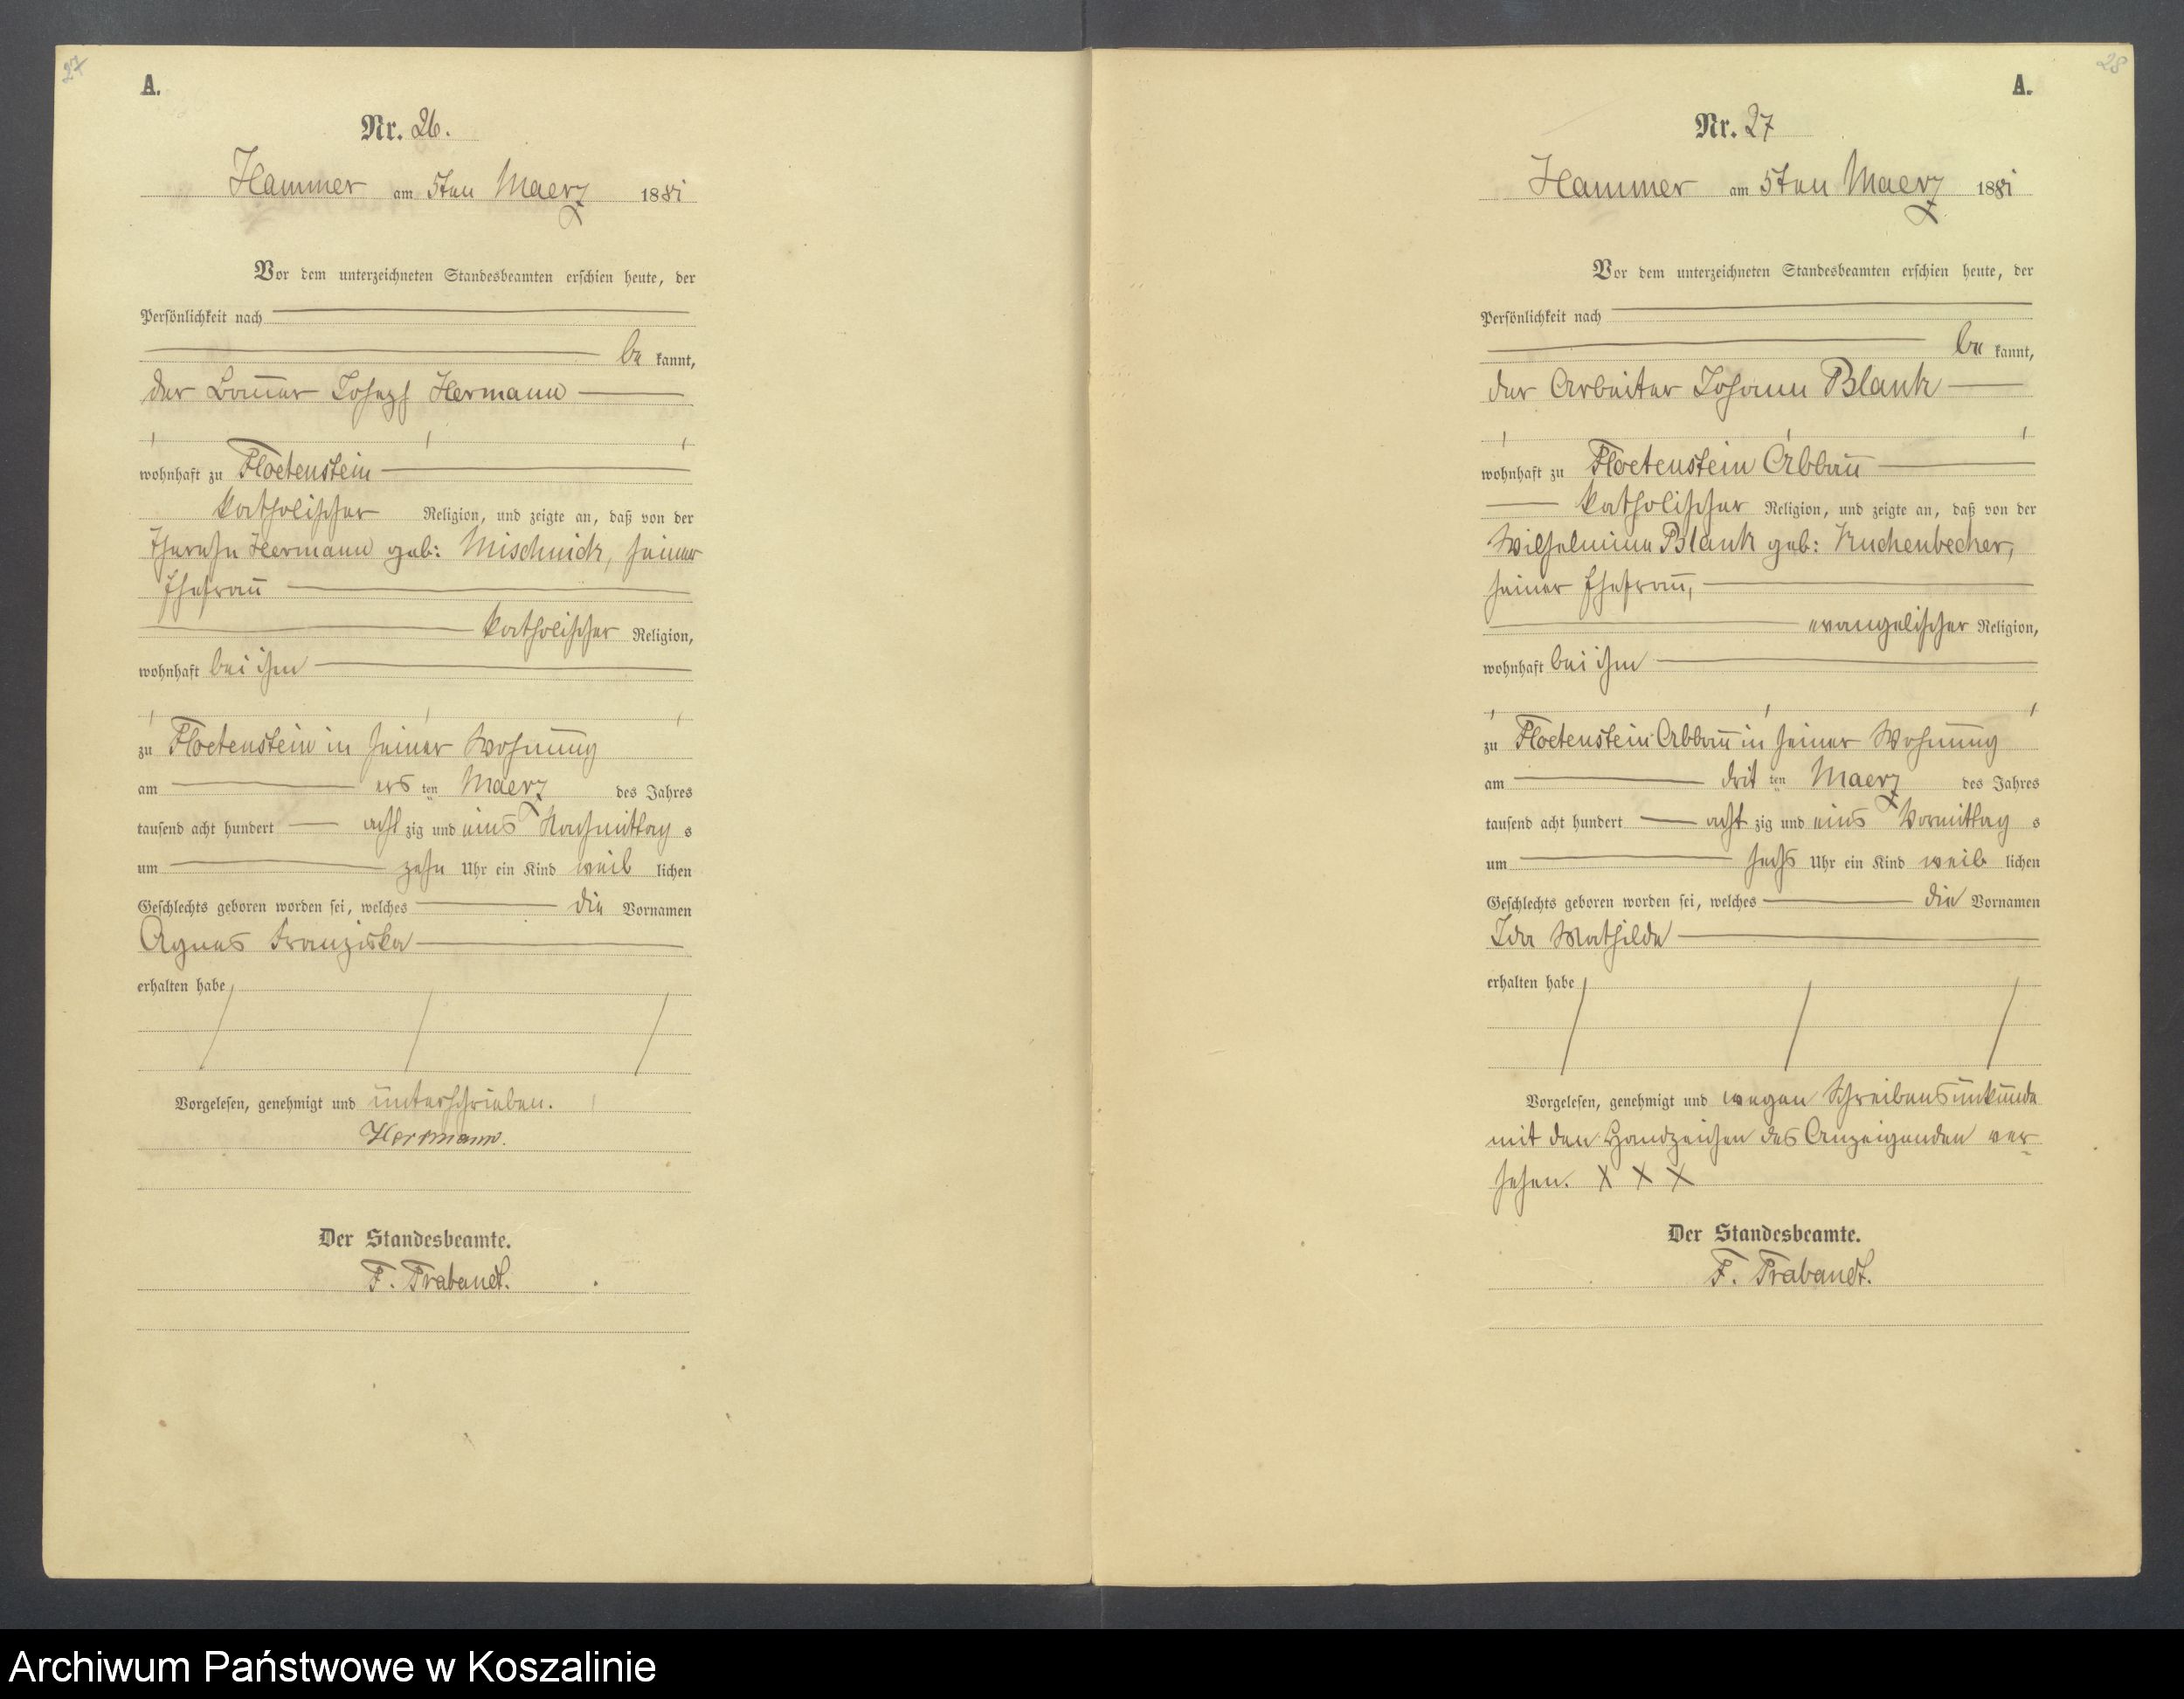 27
A.
Nr. 26.
Hammer am 5ten Maerz 1881
Vor dem unterzeichneten Standesbeamten erschien heute, der
Persönlichkeit nach
be kannt,
der Bauer Joseph Hermann
wohnhaft zu Floetenstein
katholischer Religion, und zeigte an, daß von der
Therese Hermann geb: Mischnick, seiner
Ehefrau
katholischer Religion,
wohnhaft bei ihm
zu Floetenstein in seiner Wohnung
am ers ten Maerz des Jahres
tausend acht hundert acht zig und eins Nachmittag s
um zehn Uhr ein Kind weib lichen
Geschlechts geboren worden sei, welches die Vornamen
Agnes Franziska
erhalten habe
Vorgelesen, genehmigt und unterschrieben.
Herrmann.
Der Standesbeamte.
F. Trabandt.
28
A.
Nr. 27
Hammer am 5ten Maerz 1881
Vor dem unterzeichneten Standesbeamten erschien heute, der
Persönlichkeit nach
be kannt,
der Arbeiter Johann Blank
wohnhaft zu Floetenstein Abbau
katholischer Religion, und zeigte an, daß von der
Wilhelmine Blank geb: Kuchenbecker,
seiner Ehefrau,
evangelischer Religion,
wohnhaft bei ihm
zu Floetenstein Abbau in seiner Wohnung
am drit ten Maerz des Jahres
tausend acht hundert acht zig und eins Vormittag s
um sechs Uhr ein Kind weib lichen
Geschlechts geboren worden sei, welches die Vornamen
Ida Mathilde
erhalten habe
Vorgelesen, genehmigt und wegen Schreibensunkunde
mit den Handzeichen des Anzeigenden ver
sehen. X X X
Der Standesbeamte.
F. Trabandt.
Archiwum Państwowe w Koszalinie